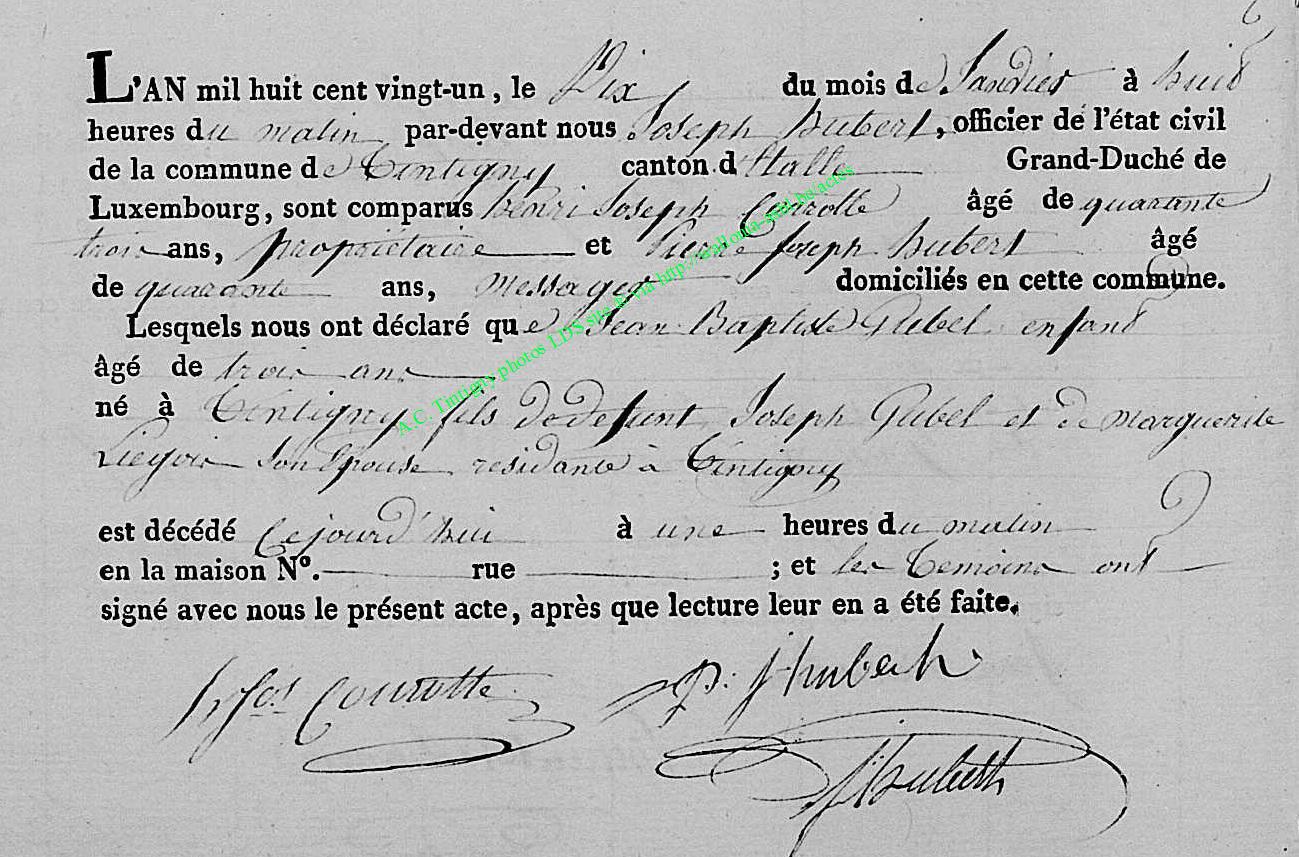 L'AN mil huit cent vingt-un, le Dix du mois de Janvier à huit
heures du matin par-devant nous Joseph Hubert, officier de l'état civil
de la commune de Tintigny canton d'Etalle Grand-Duché de
Luxembourg, sont comparus henri Joseph Courotte âgé de quarante
trois ans, propriétaire et Pierre Joseph hubert âgé
de quarante ans, Messager domiciliés en cette commune.
Lesquels nous ont déclaré que Jean Baptiste Gubel enfant
âgé de trois ans
né à Tintigny fils de defunt Joseph Gubel et de Marguerite
Liegois Son Epouse residante à Tintigny
est décédé Cejourd'hui à une heures du matin
en la maison N°. rue ; et les Temoins ont
signé avec nous le présent acte, après que lecture leur en a été faite.
h jos Courotte P. j hubert
J Hubert
A.C. Tintigny photos LDS site & via http://wallonia-sehl.be/actes